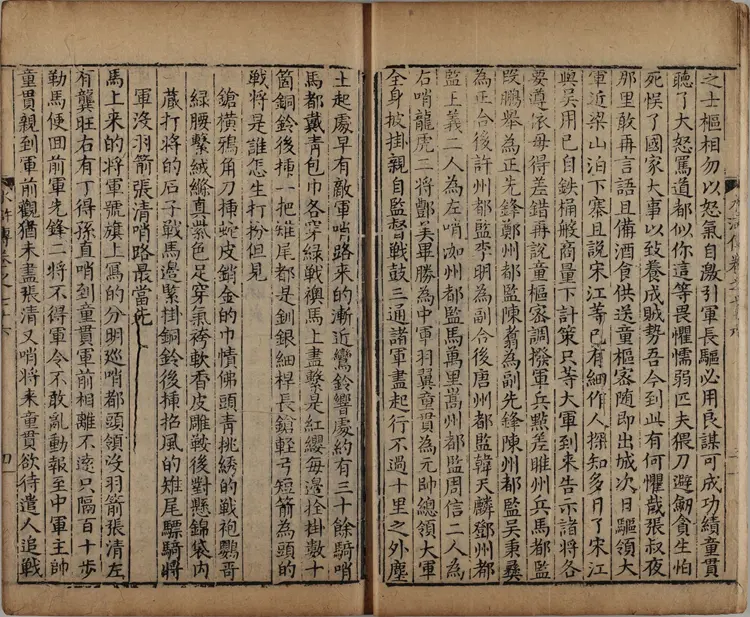 之士樞相勿以怒氣自激引軍長驅必用良謀可成功績童貫
聽了大怒罵道都似你這等畏懼懦弱匹夫猥刀避劒貪生怕
死悞了國家大事以致養成賊勢吾今到此有何懼哉張叔夜
那里敢再言語且備酒食供送童樞密隨即出城次日驅領大
軍近梁山泊下寨且說宋江等已有細作人探知多日了宋江
與吳用已自鉄桶般商量下計策只等大軍到來告示諸將各
要遵依毋得差錯再說童樞密調撥軍兵點差睢州兵馬都監
段鵬舉為正先鋒鄭州都監陳翥為副先鋒陳州都監吳秉彝
為正合後許州都監李明為副合後唐州都監韓天麟鄧州都
監王義二人為左哨洳州都監馬萬里嵩州都監周信二人為
右哨龍虎二將酆美畢勝為中軍羽翼童貫為元帥總領大軍
全身披掛親自監督戰鼓三通諸軍盡起行不過十里之外塵
土起處早有敵軍哨路來的漸近鸞鈴響處約有三十餘騎哨
馬都戴青包巾各穿綠戰襖馬上盡繫是紅纓每邊拴掛數十
箇銅鈴後揷一把雉尾都是釧銀細桿長鎗輕弓短箭為頭的
戰將是誰怎生打扮但見
鎗橫鴉角刀揷蛇皮銷金的巾幘佛頭青挑綉的戰袍鸚哥
綠腰繫絨縧真紫色足穿氣袴軟香皮雕鞍後對懸錦袋内
藏打將的石子戰馬邊緊掛銅鈴後揷招風的雉尾驃騎將
軍沒羽箭張清哨路最當先
馬上来的將軍號旗上寫的分明巡哨都頭領沒羽箭張清左
有龔旺右有丁得孫直哨到童貫軍前相離不遠只隔百十步
勒馬便囬前軍先鋒二將不得軍令不敢亂動報至中軍主帥
童貫親到軍前觀猶未盡張清又哨將来童貫欲待遣人追戰
水滸傳卷之七十六
四